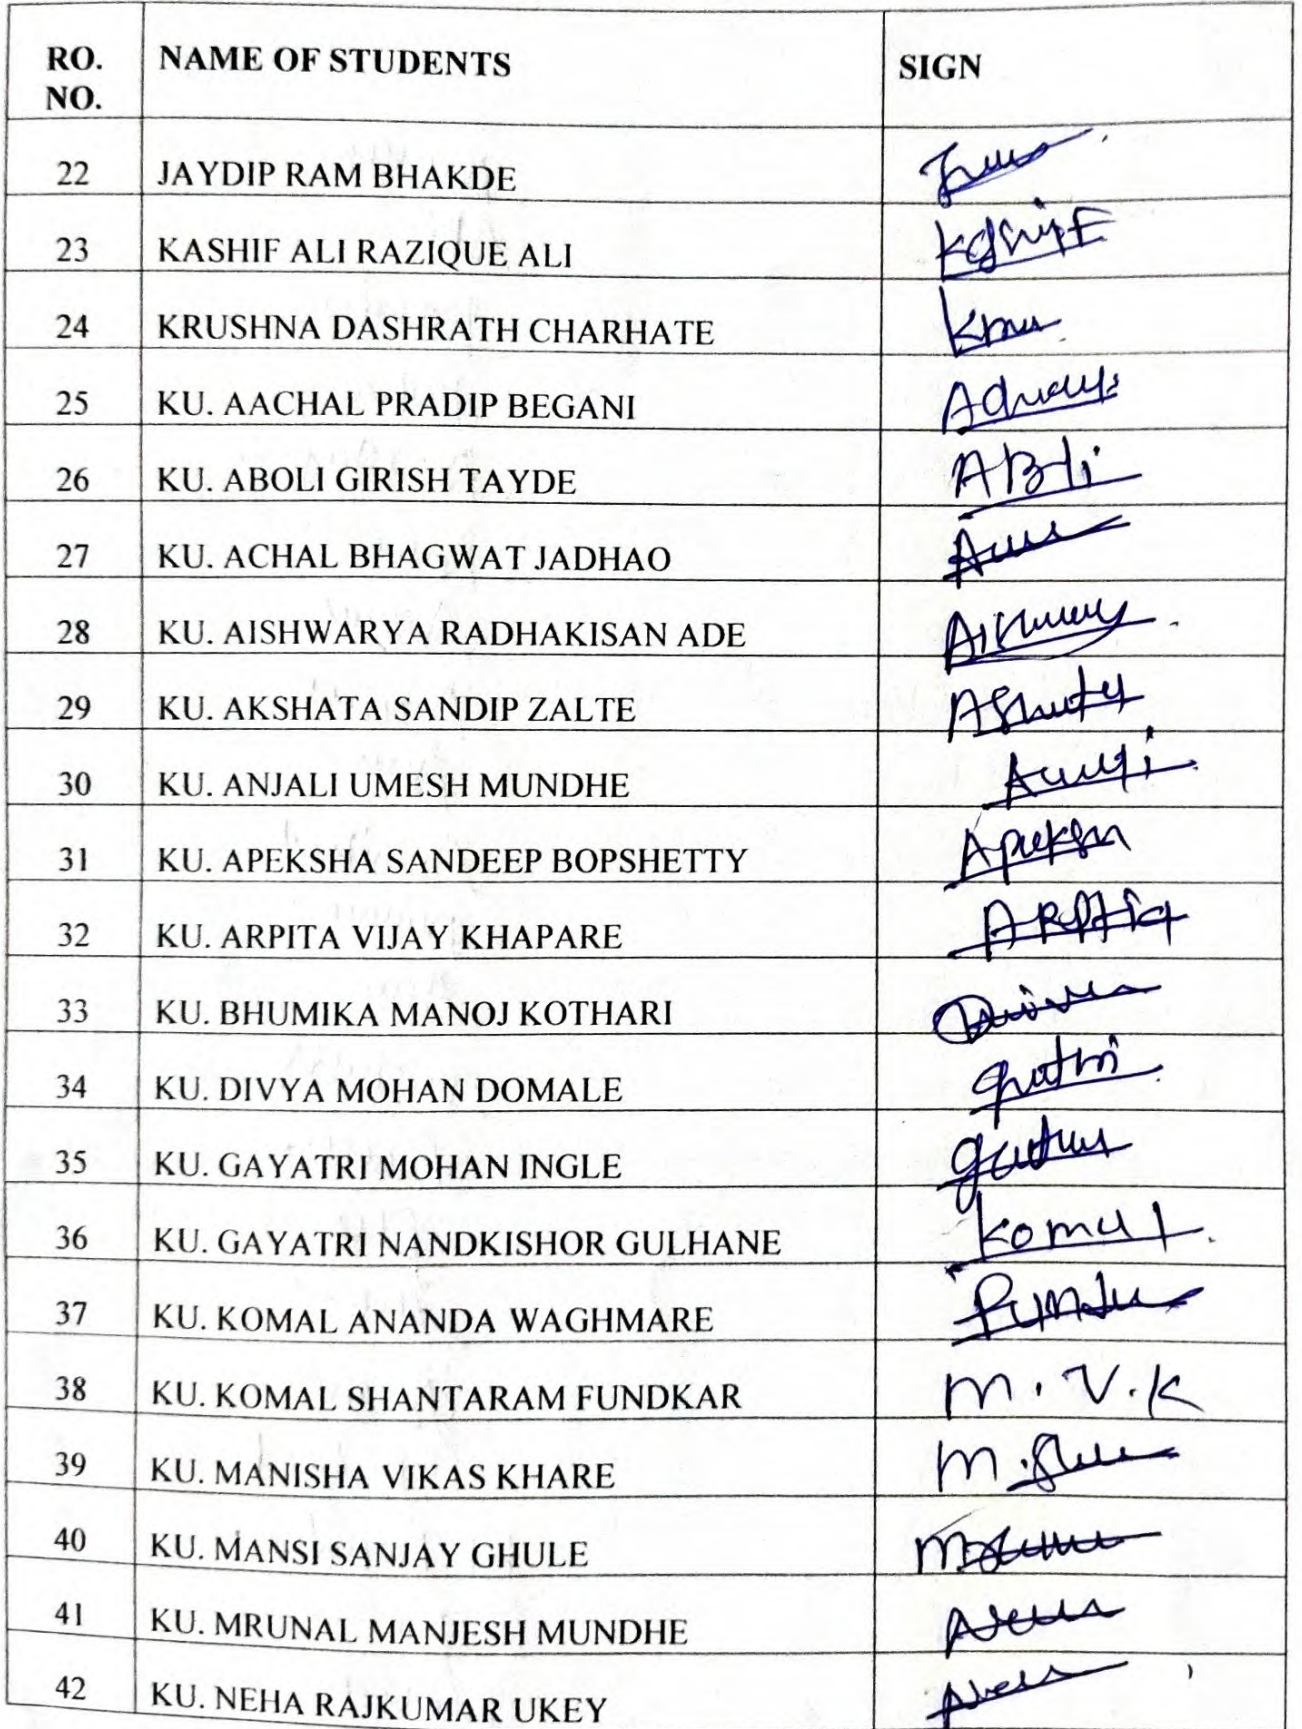 RO. NO. NAME OF STUDENTS SIGN
22 JAYDIP RAM BHAKDE
23 KASHIF ALI RAZIQUE ALI
24 KRUSHNA DASHRATH CHARHATE
25 KU. AACHAL PRADIP BEGANI
26 KU. ABOLI GIRISH TAYDE
27 KU. ACHAL BHAGWAT JADHAO
28 KU. AISHWARYA RADHAKISAN ADE
29 KU. AKSHATA SANDIP ZALTE
30 KU. ANJALI UMESH MUNDHE
31 KU. APEKSHA SANDEEP BOPSHETTY
32 KU. ARPITA VIJAY KHAPARE
33 KU. BHUMIKA MANOJ KOTHARI
34 KU. DIVYA MOHAN DOMALE
35 KU. GAYATRI MOHAN INGLE
36 KU. GAYATRI NANDKISHOR GULHANE Komal
37 KU. KOMAL ANANDA WAGHMARE
38 KU. KOMAL SHANTARAM FUNDKAR M. V. K
39 KU. MANISHA VIKAS KHARE
40 KU. MANSI SANJAY GHULE
41 KU. MRUNAL MANJESH MUNDHE
42 KU. NEHA RAJKUMAR UKEY